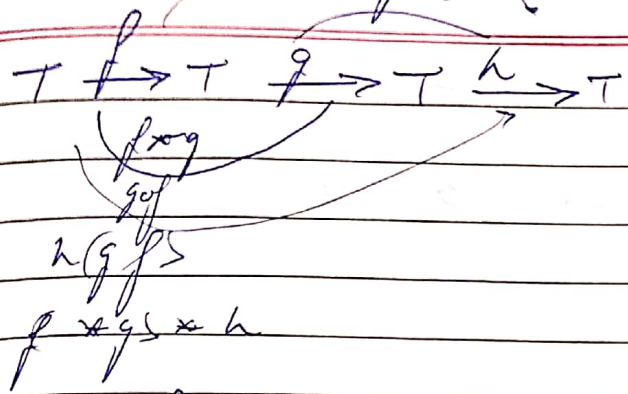 T f→ T g→ T h→ T
f * g
g∘f
h(g f)
f * g) * h